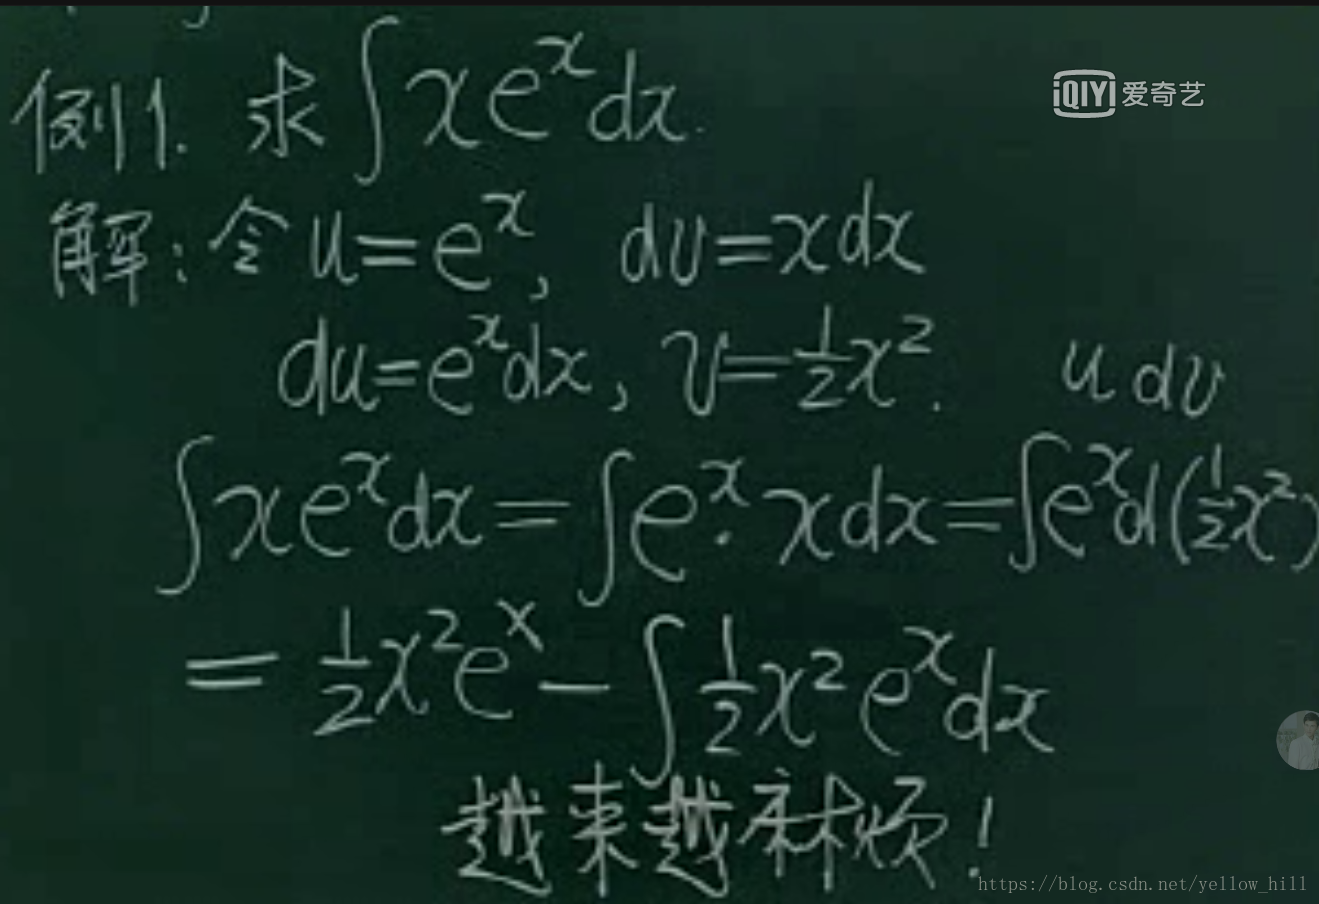 例1. 求∫xeˣdx.
iQIYI 爱奇艺
解: 令 u=eˣ, dv=xdx
du=eˣdx, v=½x². u dv
∫xeˣdx=∫eˣ·xdx=∫eˣd(½x²)
=½x²eˣ-∫½x²eˣdx
越来越麻烦!
https://blog.csdn.net/yellow_hill